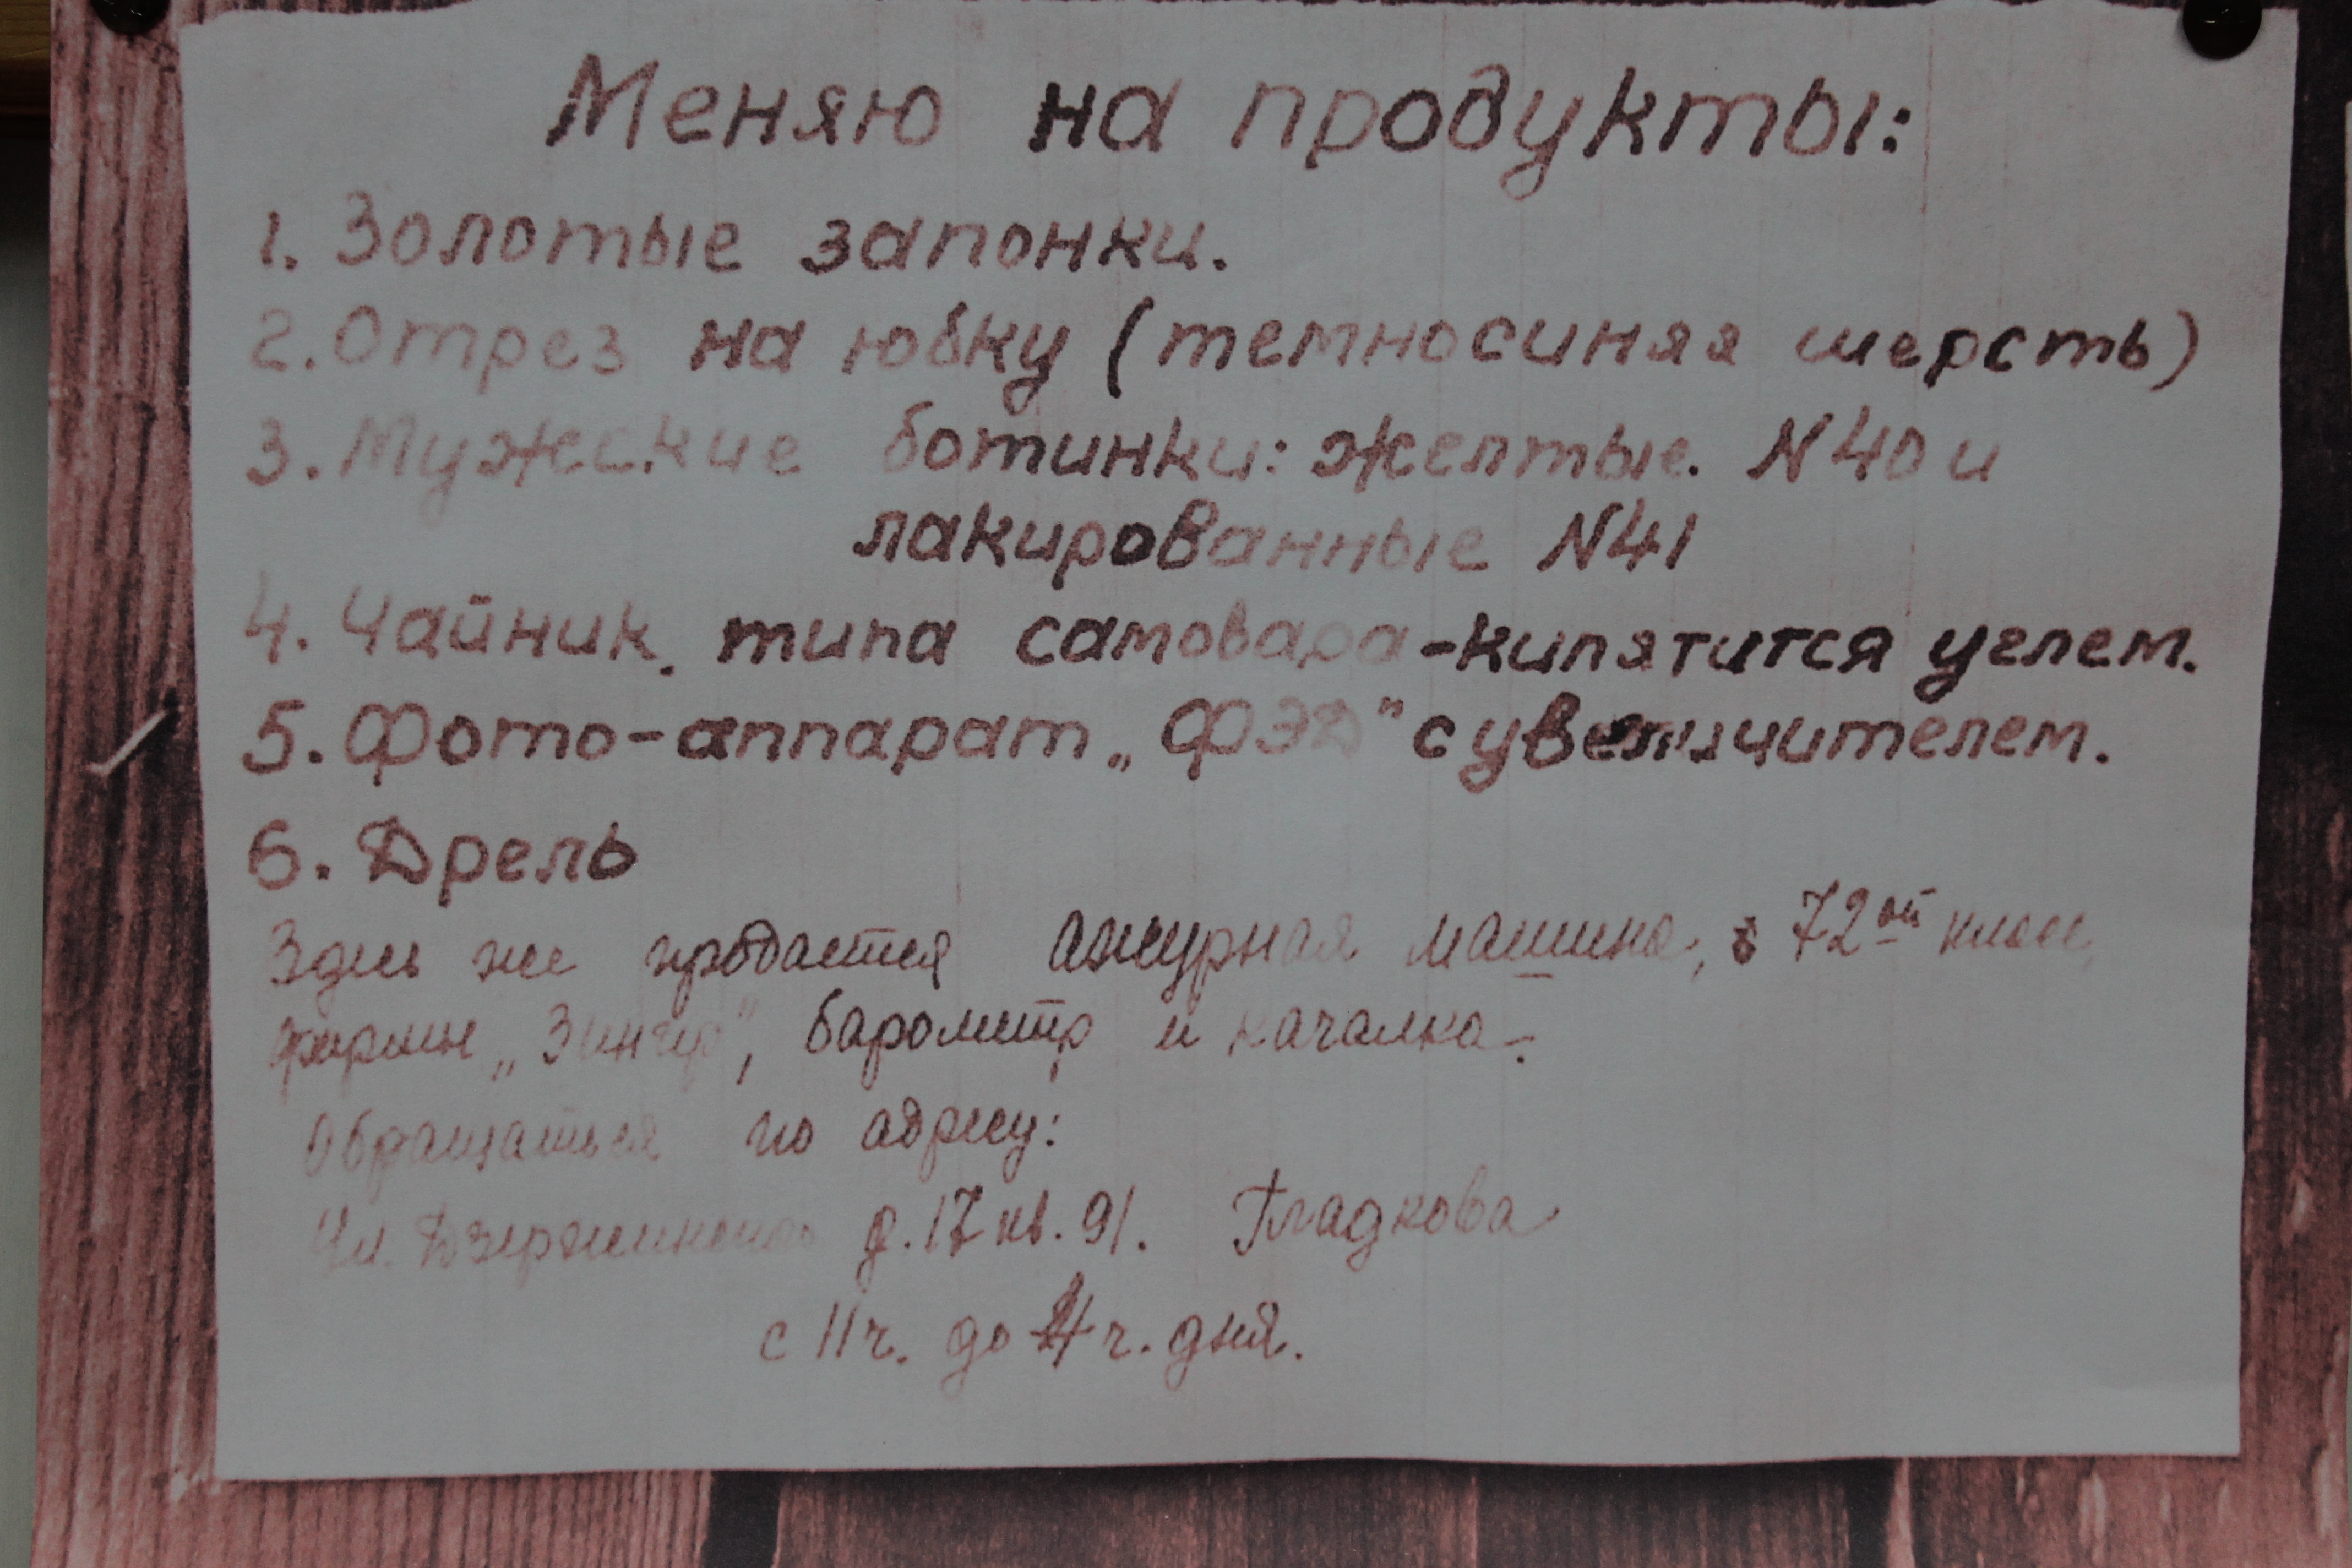 Меняю на продукты:
1. Золотые запонки.
2. Отрез на юбку (темносиняя шерсть)
3. Мужские ботинки: желтые. N40 и
лакированные N41
4. Чайник. типа самовара-кипятится углем.
5. Фото-аппарат „ФЭД" с увеличителем.
6. Дрель
Здесь же продается ажурная машина, 72ой класс,
фирмы „Зингер", барометр и качалка.
Обращаться по адресу:
Ул. Дзержинского д. 17 кв. 91. Гладкова
с 11 ч. до 4 ч. дня.